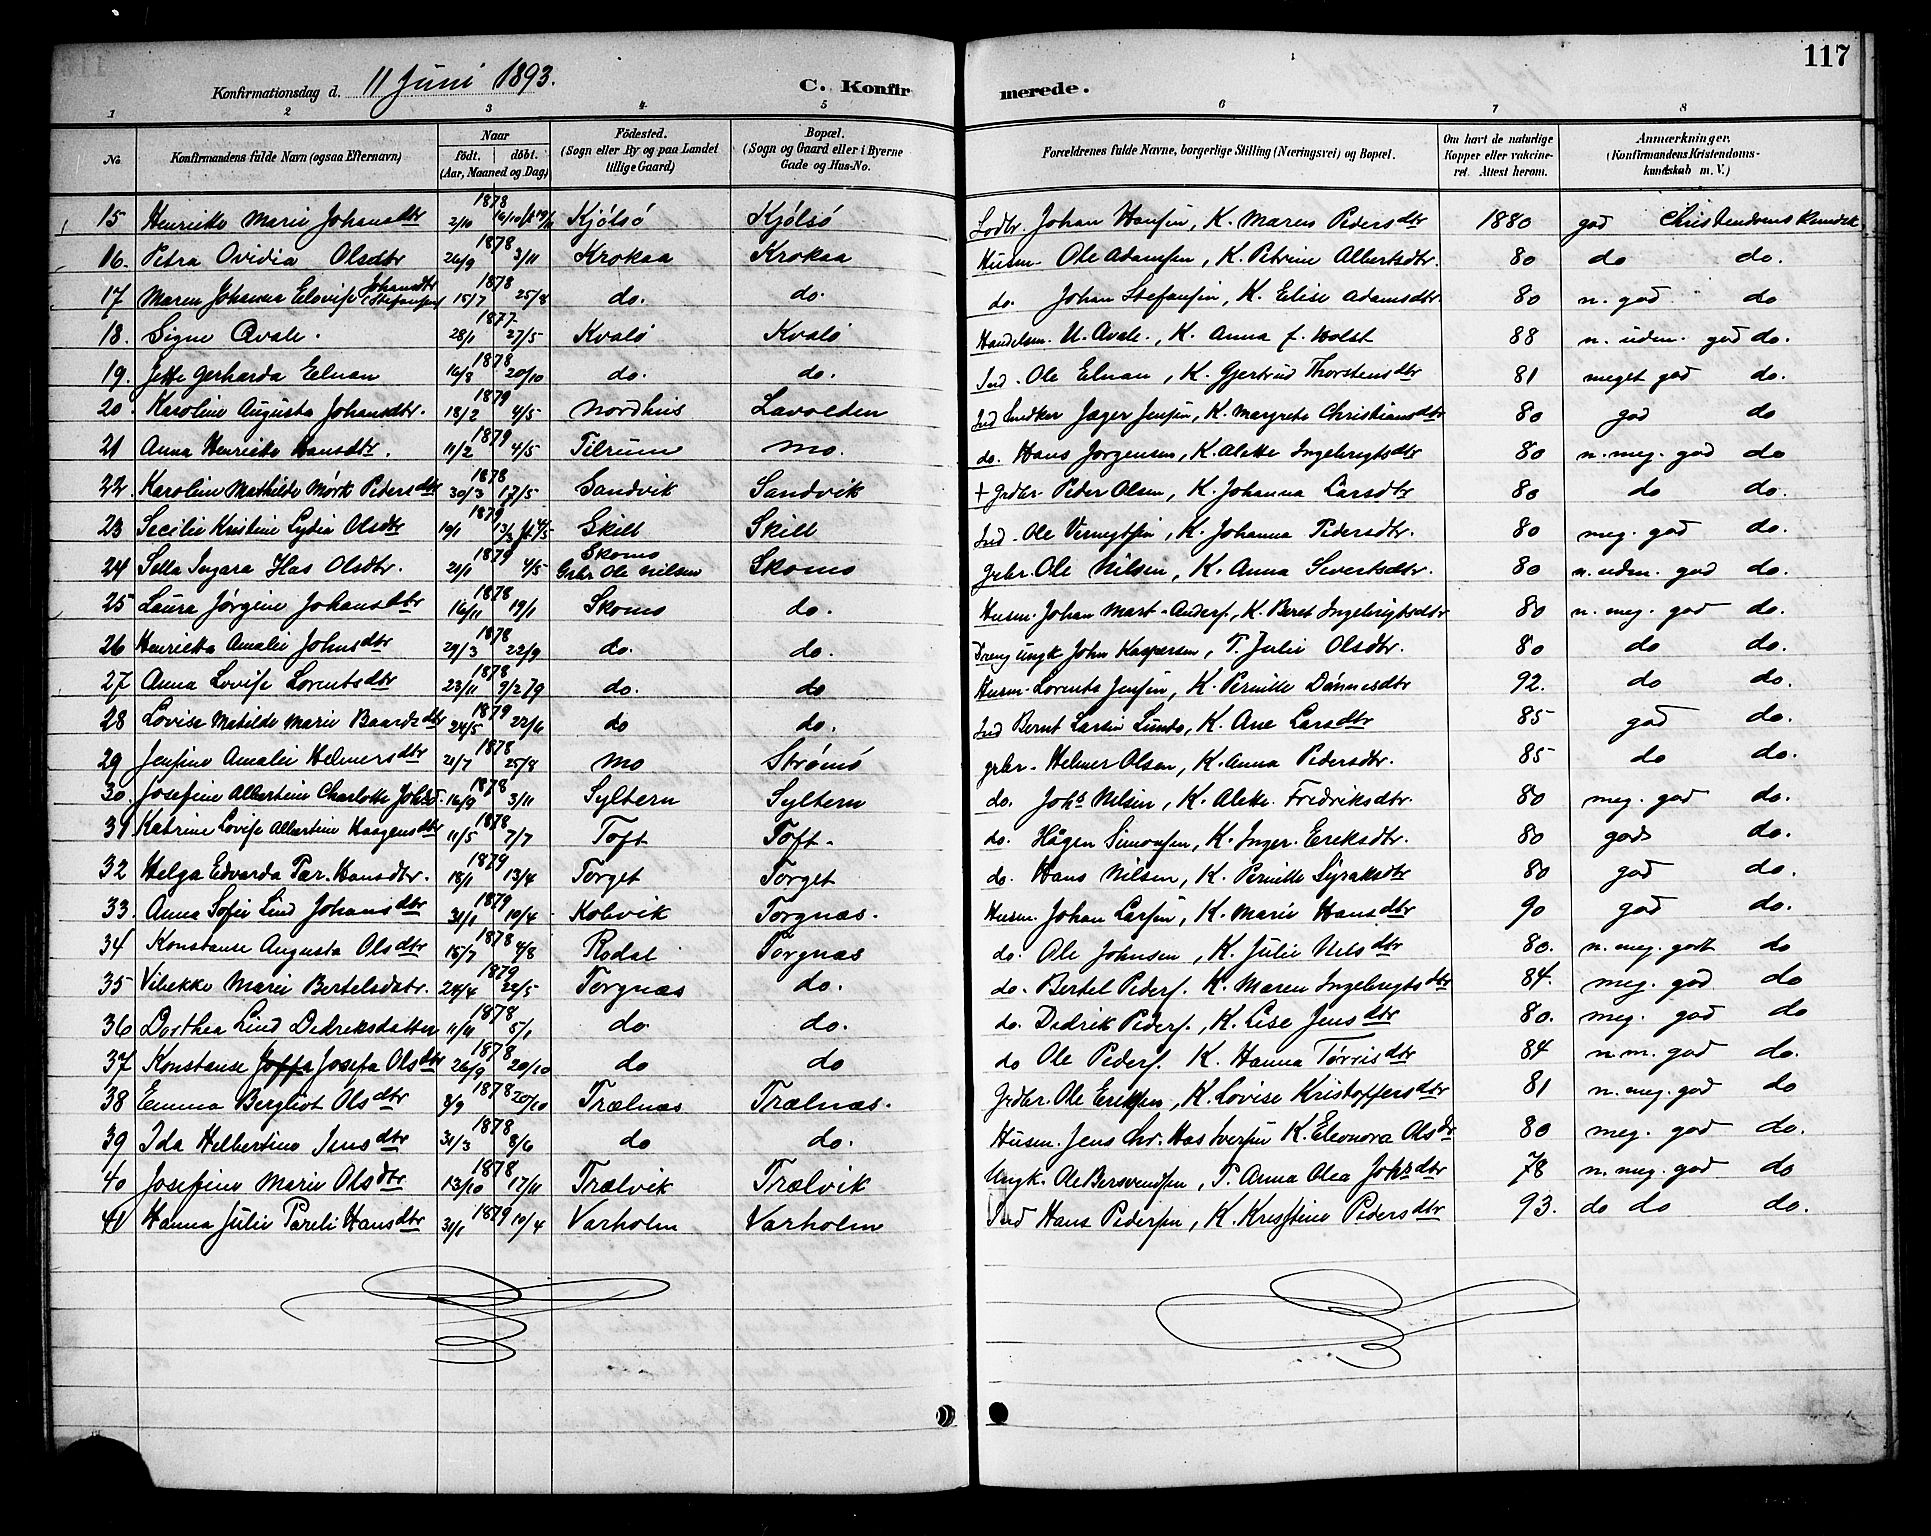 117
Konfirmationsdag d. 11 Juni 1893. C. Konfirmerede.
1 2 3 4 5 6 7 8
No. Konfirmandens fulde Navn (ogsaa Efternavn) Naar födt. döbt. (Aar, Maaned og Dag) Födested. (Sogn eller By og paa Landet tillige Gaard) Bopæl. (Sogn og Gaard eller i Byerne Gade og Hus-No. Forældrenes fulde Navne, borgerlige Stilling (Næringsvei) og Bopæl. Om havt de naturlige Kopper eller vakcineret. Attest herom. Anmærkninger, (Konfirmandens Kristendomskundskab m. V.)
15 Henrikke Marie Johansdtr 1878 2/10 Kjølsø Kjølsø Johan Hansen, K. Maren Pedersdtr 1880 god Christendoms kundsk
16. Petra Ovidia Olsdtr 1878 26/9 3/11 Krokaa Krokaa Husm. Ole Adamsen, K. Petrine Albertsdtr. 80 do do.
17 Maren Johanna Elovise Johansdtr (Stefansen) 1878 15/7 25/8 do. do. do. Johan Stefansen, K. Elise Adamsdtr 80 n. god do
18. Signe Qvale. 1877 28/1 27/5 Kvalø Kvalø Handelsm. U. Qvale., K. Anna f. Holst 88 n. udm. god do.
19. Jette Gerharda Elnan 1878 16/8 20/10 do. do. Ind. Ole Elnan, K. Gjertrud Thorstensdtr 81 meget god do.
20. Karoline Augusta Johansdtr. 1879 18/2 4/5 Nordhus Lavolden Ind Snedker Jæger Jensen, K. Margrete Christiansdtr 80 god do
21 Anna Henrikke Hansdtr. 1879 11/2 4/5 Tilrum Mo. do. Hans Jørgensen, K. Alette Ingebrigtsdtr 80 n. meg. god do
22 Karoline Mathilde Mørk Pedersdtr 1878 30/3 17/5 Sandvik Sandvik + Grdbr. Peder Olsen, K. Johanna Larsdtr 80 do do.
23 Secilie Kristine Lydia Olsdtr 1879 19/1 Skilt Skilt Ind. Ole K. Johanna Pedersdtr. 80 meg. god do.
24 Sella Ingara Has Olsdtr. 1879 21/1 4/5 Skomo Grbr Ole Nilsen Skomo grbr. Ole Nilsen, K. Anna Sivertsdtr. 80 n. udm. god do.
25 Laura Jørgine Johansdtr 1878 16/11 19/1 Skomo do. Husm. Johan Mart. Anders., K. Beret Ingebrigtsdtr 80 n. meg. god do.
26 Henrikka Amalie Johnsdtr 1878 29/3 22/9 do. do. Dreng ungk John Kaspersen, P. Julie Olsdtr. 80 do do.
27 Anna Lovise Lorentsdtr 1878 23/11 9/2 79 do. do Husm. Lorents Jensen, K. Pernille Dønnesdtr 92. do do.
28 Lovise Matilde Marie Baardsdtr 1879 24/5 22/6 do do. Ind Bernt Larsen Lundø, K. Ane Larsdtr 85 god do.
29 Jensine Amalie Helmersdtr 1878 21/7 25/8 Mo Strømø grbr. Helmer Olsen, K. Anna Pedersdtr. 85 do do.
30. Josefine Albertine Charlotte Johsd. 1878 16/9 3/11 Syltern Syltern do. Johs Nilsen, K. Alette Fredriksdtr. 80 meg. god do.
31 Katrine Lovise Albertine Haagensdtr 1878 11/5 7/7 Toft Toft. do. Hågen Simonsen, K. Inger Eriksdtr. 80 god do.
32 Helga Edvarda Pær. Hansdtr. 1879 18/1 13/4 Torget Torget do. Hans Nilsen, K. Pernille Syraksdtr 80 god do.
33. Anna Sofie Lind Johansdtr 1879 31/1 10/4 Kolvik Torgnæs. Husm. Johan Larsen, K. Marie Hansdtr 90 god do.
34 Konstanse Augusta Olsdtr 1878 15/7 4/8 Rodal Torgnæs do. Ole Johnsen, K. Julie Nilsdtr 80. n. meg. godt do
35 Vibekke Marie Bertelsdatr. 1879 24/4 22/5 Torgnæs do. do. Bertel Peders. K. Maren Ingebrigtsdtr 84. meg. god do
36 Dorthea Lind Didriksdatter 1878 11/11 5/1 do do. do. Didrik Peders., K. Lise Jensdtr 80. meg. god do
37 Konstanse Josefa Olsdtr 1878 26/9 20/10 do do do Ole Peders. K. Hanna Tørrisdtr 84 n. m. god do.
38 Emma Bergliot Olsdtr 1878 8/9 20/10 Trælnæs Trælnæs. Grdbr. Ole Eriksen, K. Lovise Kristoffersdtr 81 n. meg. god do
39 Ida Helbertine Jensdtr 1878 31/3 8/6 do do. Husm. Jens Chr. Has Iversen K. Eleonora Olsdr 80 meg. god do.
40 Josefine Marie Olsdtr 1878 13/10 17/11 Trælvik Trælvik Ungk. Ole Bersvendsen, P. Anna Olea Johsdtr 78 n. meg. god do
41 Hanna Julie Pareli Hansdtr 1879 31/1 19/4 Varholm Varholm Ind Hans Pedersen, K. Kristine Pedersdtr 93. do do do.